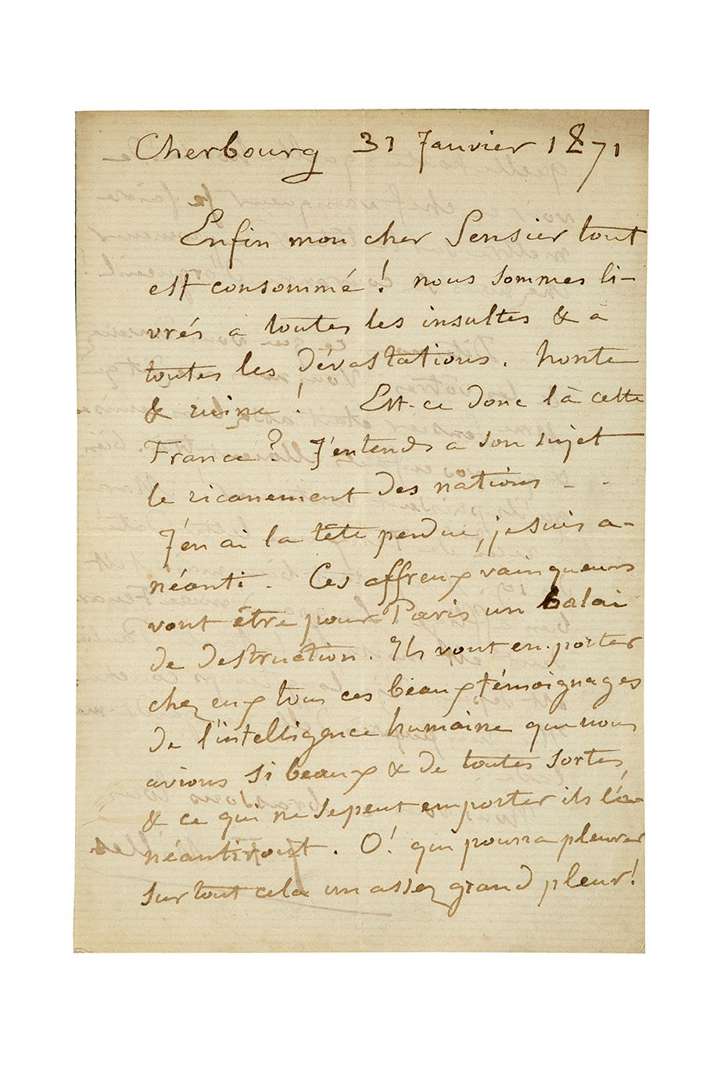 Cherbourg 31 Janvier 1871
Enfin mon cher Sensier tout
est consommé ! nous sommes li-
vrés à toutes les insultes & à
toutes les dévastations. honte
& ruine ! Est-ce donc là cette
France ? J'entends à son sujet
le ricanement des nations - -
J'en ai la tête perdue, je suis a-
néanti. Ces affreux vainqueurs
vont être pour Paris un balai
de destruction. Ils vont emporter
chez eux tous ces beaux témoignages
de l'intelligence humaine que nous
avions si beaux & de toutes sortes,
& ce qui ne se peut emporter ils l'a-
néantiront. O! qui pourra pleurer
sur tout cela un assez grand pleur!